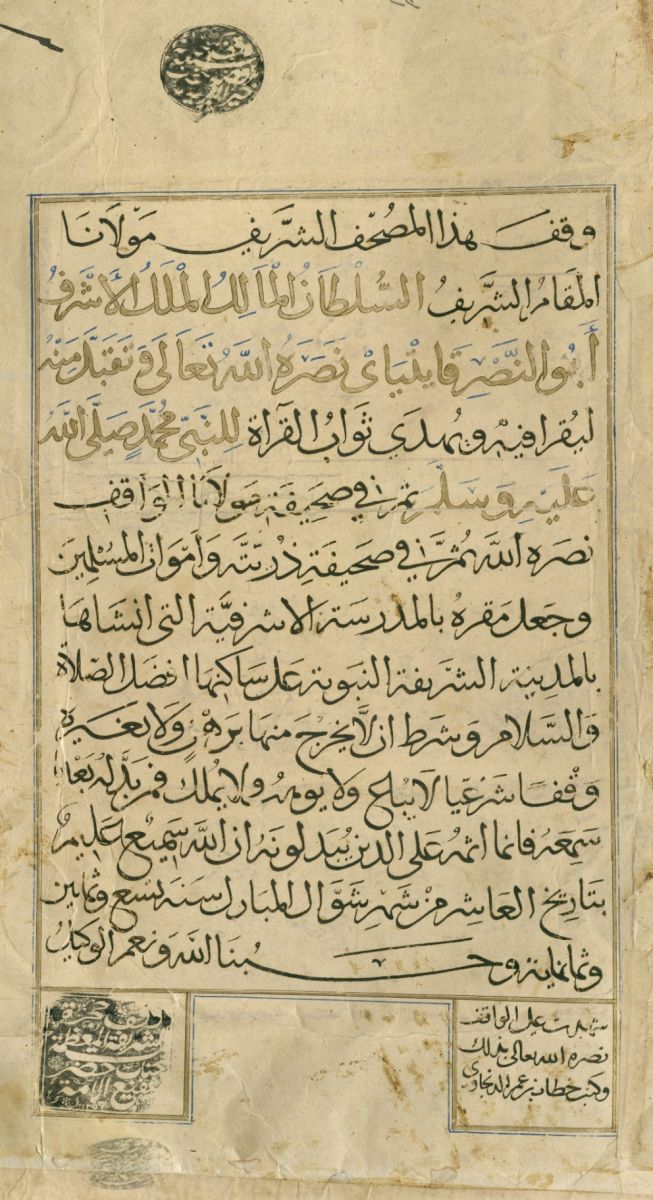 وقف هذا المصحف الشريف مولانا
المقام الشريف السلطان المالك الملك الاشرف
أبو النصر قايتباى نصره الله تعالى وتقبل منه
ليقرا فيه ويهدى ثواب القراة للنبى محمد صلى الله
عليه وسلم ثم فى صحيفة مولانا الواقف
نصره الله ثم فى صحيفة ذريته وأموات المسلمين
وجعل مقره بالمدرسة الاشرفية التى انشاها
بالمدينة الشريفة النبوية على ساكنها افضل الصلاة
والسلام وشرط ان لا يخرج منها برهن ولا بغيره
وقفا شرعيا لا يباع ولا يوهب ولا يملك فمن بدله بعدما
سمعه فانما اثمه على الذين يبدلونه ان الله سميع عليم
بتاريخ العاشر من شهر شوال المبارك سنة تسع وثمانين
وثمانماية وحسبنا الله ونعم الوكيل
شهدت على الواقف
نصره الله تعالى بذلك
وكتب خطاب بن عمر الدنجاوى